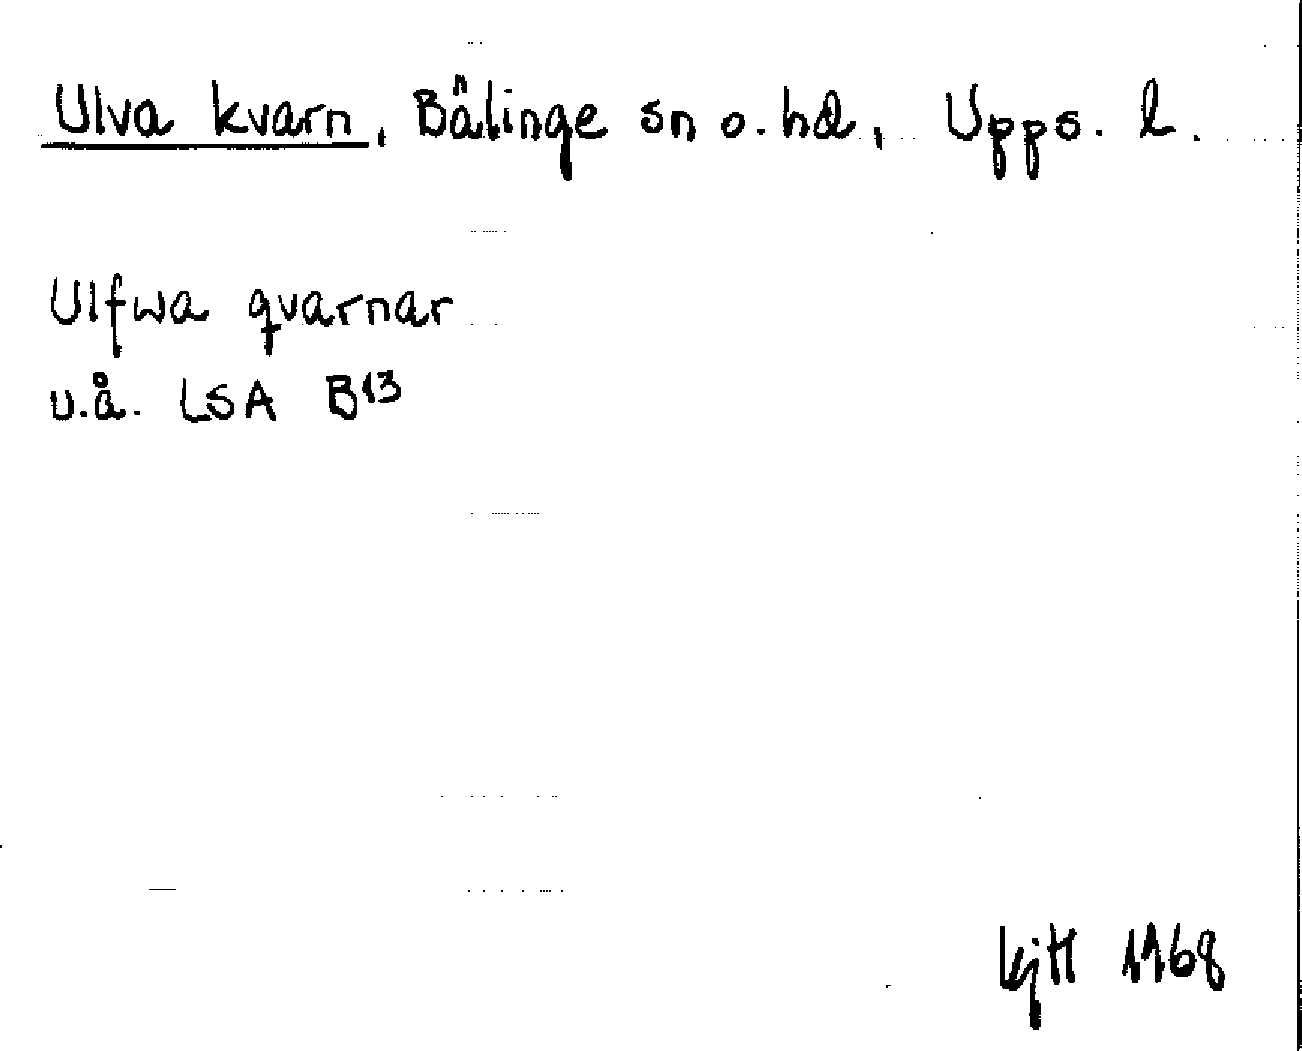 Ulva kvarn, Bälinge sn o. hd, Upps. l.
Ulfwa qvarnar
u.å. LSA B¹³
1168